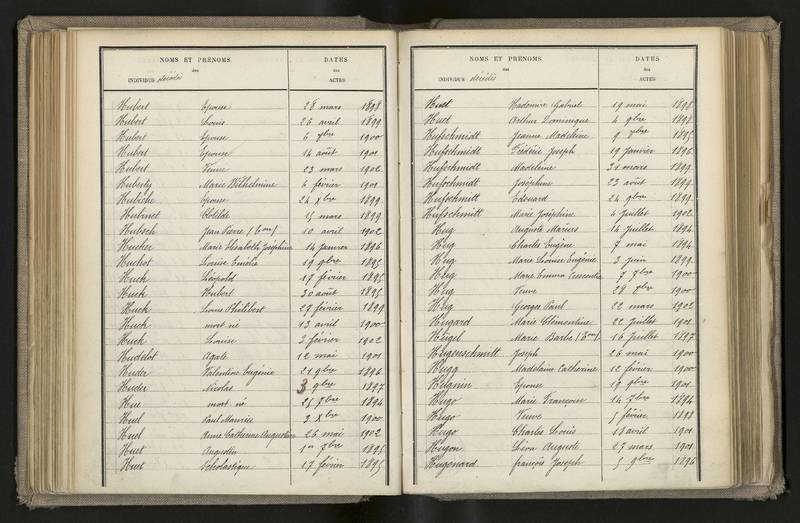 NOMS ET PRÉNOMS
des
INDIVIDUS décédés
DATES
des
ACTES
Hubert Epouse 28 mars 1898
Hubert Louis 26 avril 1899
Hubert Epouse 6 7bre 1900
Hubert Epouse 14 août 1901
Hubert Veuve 23 mars 1902
Huberty Marie Wilhelmine 6 février 1901
Hubiche Epouse 24 xbre 1899
Hubrnet Clotilde 15 mars 1899
Hubsch Jean Pierre (Eon) 10 avril 1902
Huckee Marie Elisabeth Joséphine 14 janvier 1896
Huchot Louise Emélie 19 9bre 1895
Huck Léopold 17 février 1895
Huck Hubert 30 août 1895
Huck Louis Philibert 27 février 1899
Huck mort né 13 avril 1900
Huck Louise 3 février 1902
Hudelot Agate 12 mai 1901
Huder Valentine Eugénie 21 9bre 1896
Huder Nicolas 3 9bre 1897
Hue mort né 25 7bre 1894
Huel Paul Maurice 3 xbre 1900
Huel Anne Catherine Augustine 26 mai 1902
Huet Augustin 1er 7bre 1895
Huet Scholastique 17 février 1895
NOMS ET PRÉNOMS
des
INDIVIDUS décédés
DATES
des
ACTES
Huet Gabriel 19 mai 1898
Huet Arthur Dominique 4 9bre 1898
Hufschmidt Jeanne Madeleine 9 7bre 1895
Hufschmidt Frédéric Joseph 19 janvier 1896
Hufschmidt Madeleine 31 mars 1899
Hufschmidt Joséphine 23 août 1899
Hufschmitt Edouard 24 9bre 1899
Hufschmitt Marie Joséphine 4 juillet 1902
Hug Auguste Marius 14 juillet 1894
Hug Charles Eugène 7 mai 1894
Hug Marie Louise Eugénie 3 juin 1899
Hug Marie Emma 7 7bre 1900
Hug Veuve 28 7bre 1900
Hug Georges Paul 22 mars 1902
Hugard Marie Clémentine 22 juillet 1901
Hugel Marie Barbe (Eon) 16 juillet 1897
Hugenschmitt Joseph 26 mai 1900
Hugg Madelaine Catherine 12 février 1900
Hugnin Epouse 19 9bre 1901
Hugo Marie Françoise 14 7bre 1894
Hugo Veuve 5 février 1898
Hugo Charles Louis 18 avril 1901
Hugon Léon Auguste 27 mars 1901
Hugonard françois Joseph 5 9bre 1896